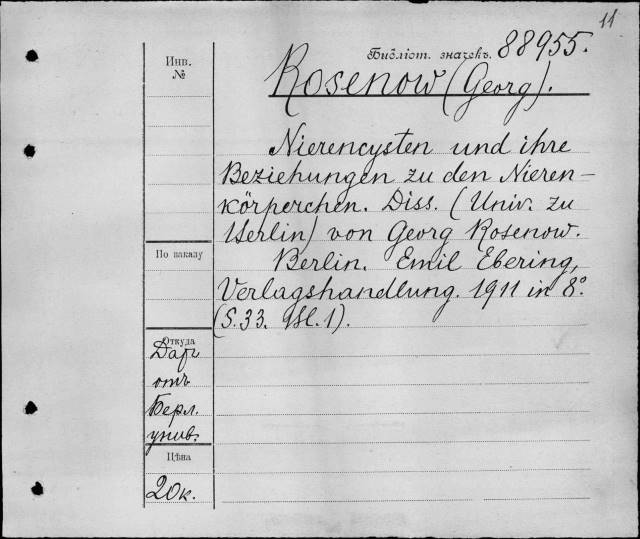 11
Библіот. значекъ. 88955.
Инв.
№
Rosenow (Georg).
Nierencysten und ihre
Beziehungen zu den Nieren-
körperchen. Diss. (Univ. zu
Berlin) von Georg Rosenow.
По заказу
Berlin. Emil Ebering,
Verlagshandlung. 1911 in 8º.
(S. 33. Bl. 1).
Откуда
Даръ
отъ
Берл.
унив.
Цѣна
20к.